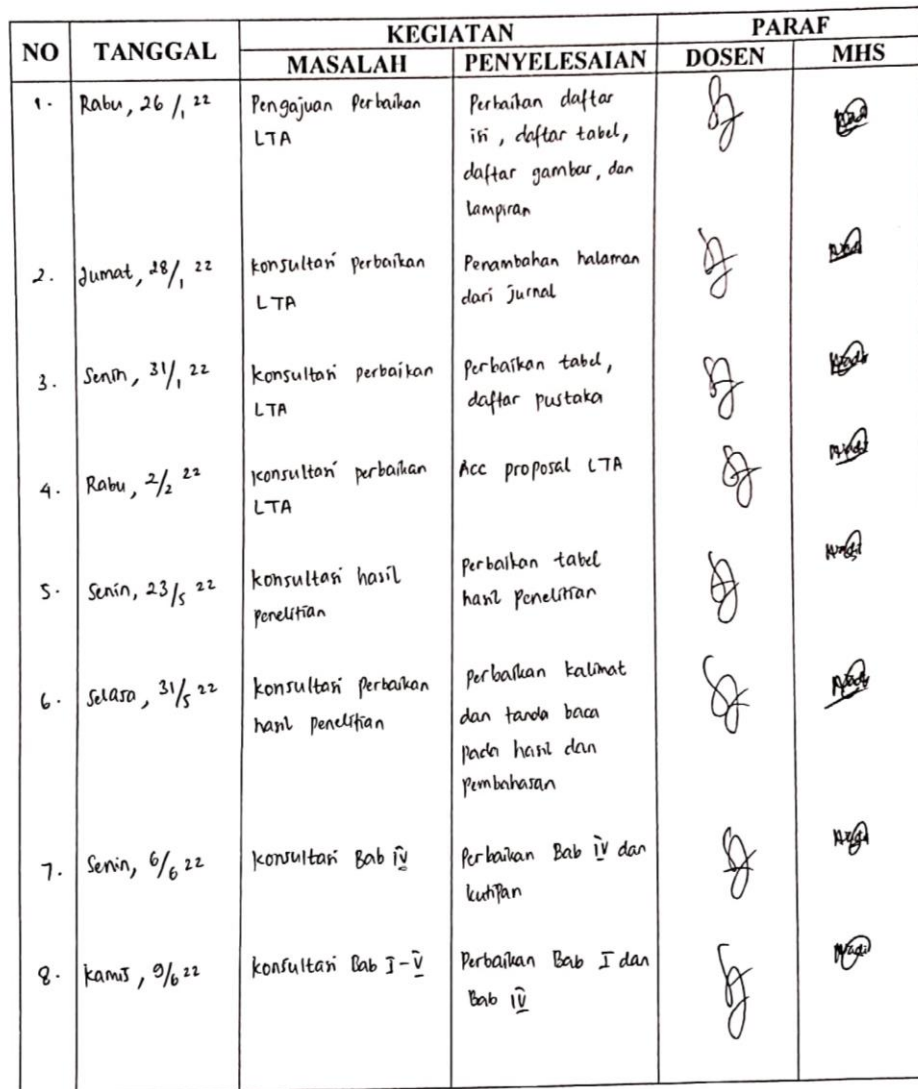 NO TANGGAL KEGIATAN PARAF
MASALAH PENYELESAIAN DOSEN MHS
1. Rabu, 26/1 22 Pengajuan Perbaikan Perbaikan daftar
LTA isi, daftar tabel,
daftar gambar, dan
lampiran
2. Jumat, 28/1 22 konsultasi perbaikan Penambahan halaman
LTA dari jurnal
3. Senin, 31/1 22 konsultasi perbaikan Perbaikan tabel,
LTA daftar pustaka
4. Rabu, 2/2 22 konsultasi perbaikan Acc proposal LTA
LTA
5. Senin, 23/5 22 konsultasi hasil perbaikan tabel
penelitian hasil penelitian
6. Selasa, 31/5 22 konsultasi Perbaikan perbaikan kalimat
hasil penelitian dan tanda baca
pada hasil dan
pembahasan
7. Senin, 6/6 22 konsultasi Bab IV Perbaikan Bab IV dan
kutipan
8. Kamis, 9/6 22 konsultasi Bab I-V Perbaikan Bab I dan
Bab IV